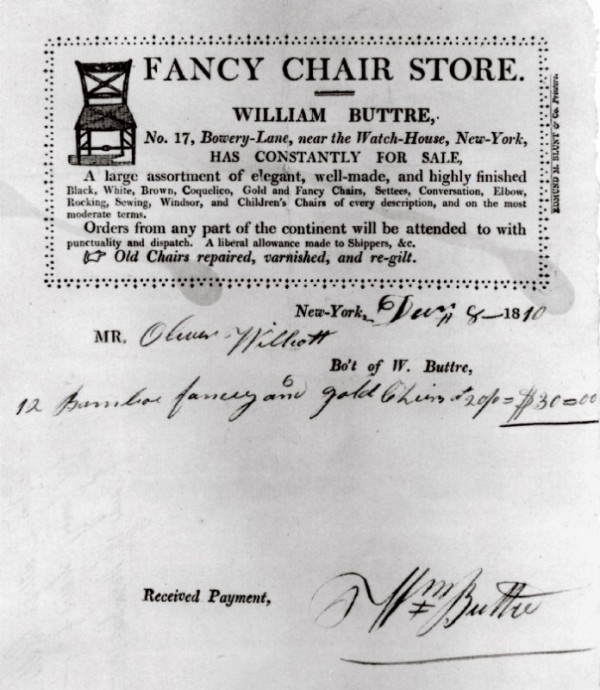 FANCY CHAIR STORE.
WILLIAM BUTTRE,
No. 17, Bowery-Lane, near the Watch-House, New-York,
HAS CONSTANTLY FOR SALE,
A large assortment of elegant, well-made, and highly finished
Black, White, Brown, Coquelico, Gold and Fancy Chairs, Settees, Conversation, Elbow,
Rocking, Sewing, Windsor, and Children's Chairs of every description, and on the most
moderate terms.
Orders from any part of the continent will be attended to with
punctuality and dispatch. A liberal allowance made to Shippers, &c.
☞ Old Chairs repaired, varnished, and re-gilt.
EDMUND M. BLUNT & Co. Printers.
New-York, 8 1810
MR. Oliver
Bo't of W. Buttre,
12 Bamboe fancy and gold 20/ = $30=00
Received Payment,
Wm Buttre